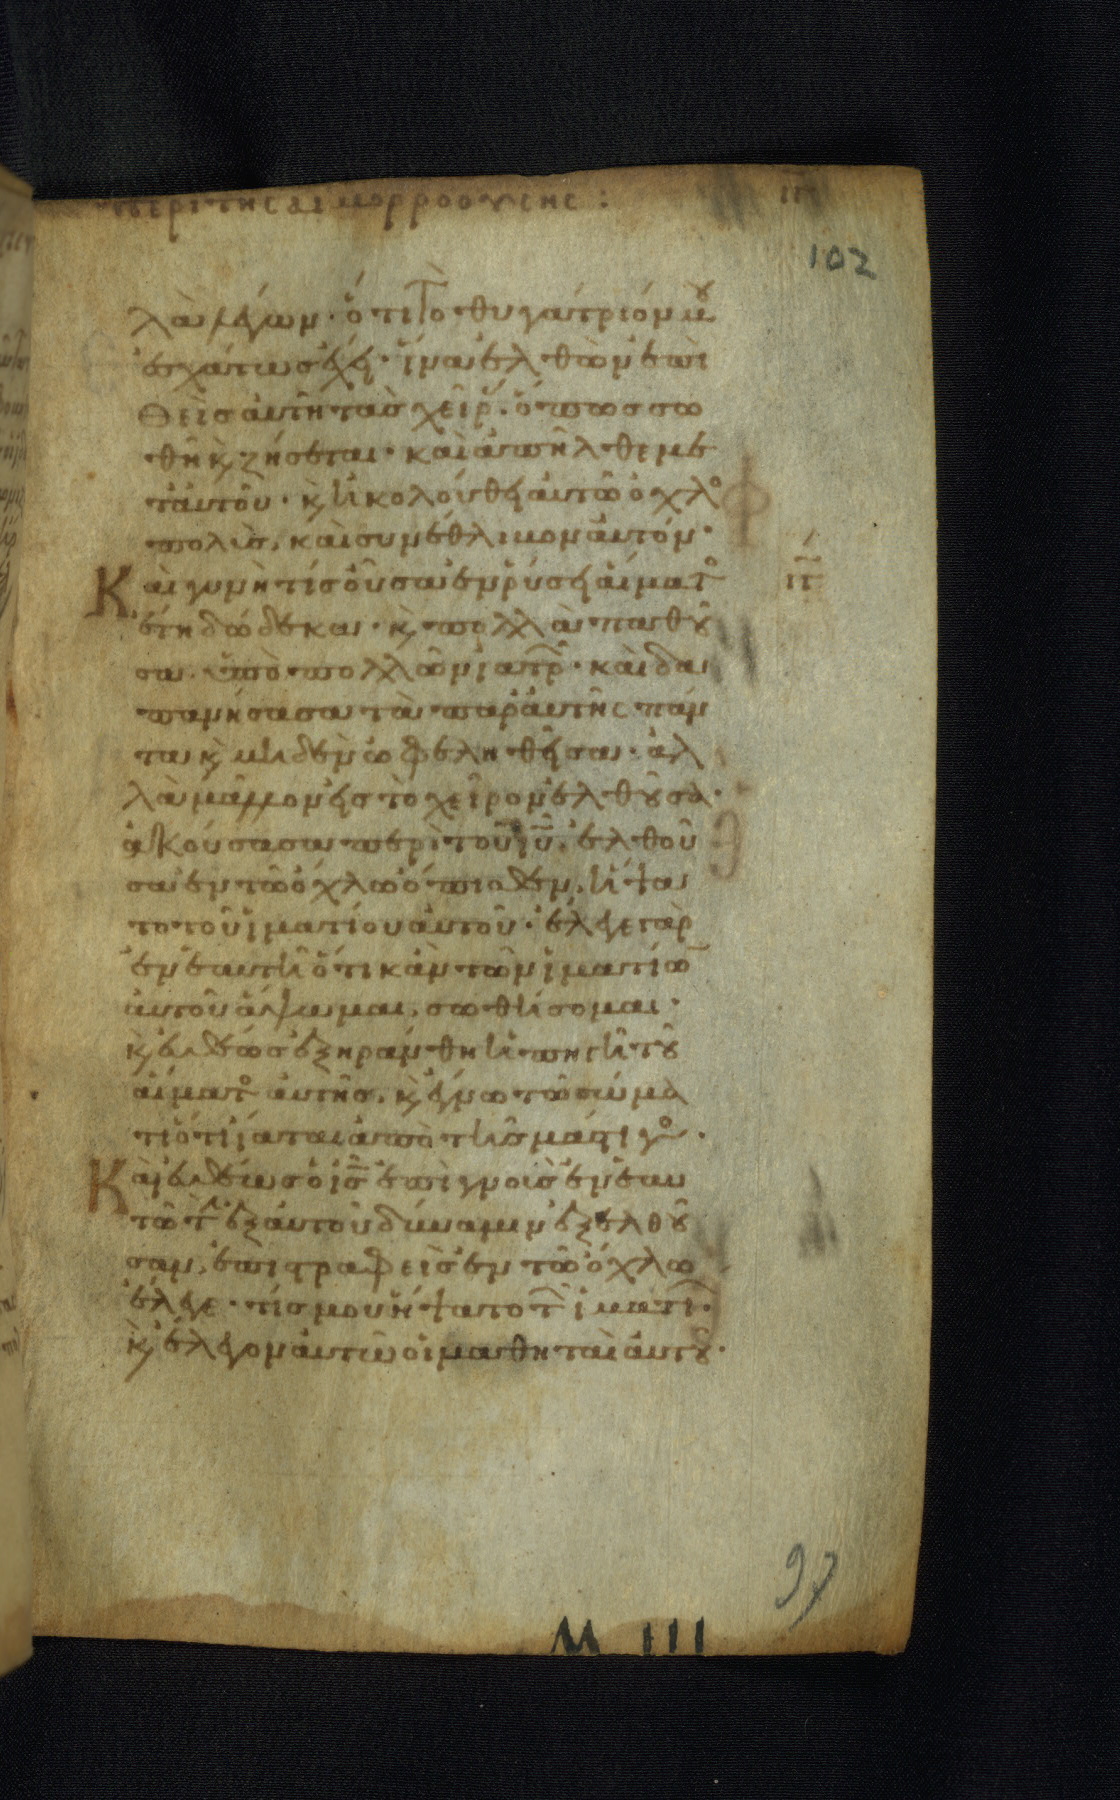 περι της αιμορροουσης :
102
λὰ λέγων · ὅτι τὸ θυγάτριόν μου
ἐσχάτως ἔχει · ἵνα ἐλθὼν ἐπι
θεὶς αὐτῆ τὰς χεῖρ · ὅπως σω
θῆ κ ζήσεται · καὶ ἀπῆλθε με
τ αὐτοῦ · κ ἠκολούθει αὐτῶ ὄχλο
πολὺς, καὶ συνέθλιβον αὐτόν ·
Καὶ γυνὴ τίς οὖσα ἐν ῥύσει αἵματο
ἔτη δώδεκα · κ πολλὰ παθοῦ
σα ὑπὸ πολλῶν ἰατρ · καὶ δα
πανήσασα τὰ παρ αὐτῆς πάν
τα κ μηδὲν ὠφεληθεῖσα · ἀλ
λὰ μᾶλλον εἰς τὸ χεῖρον ἐλθοῦσα ·
ἀκούσασα περὶ τοῦ ἰῦ, ἐλθοῦ
σα ἐν τῶ ὄχλω ὄπισθεν, ἥψα
το τοῦ ἱματίου αὐτοῦ · ἔλεγε γὰρ
ἐν ἑαυτῆ ὅτι κἂν τῶν ἱματίω
αὐτοῦ ἅψωμαι, σωθήσομαι ·
κ εὐθέως ἐξηράνθη ἡ πηγὴ τοῦ
αἵματο αὐτῆς, κ ἔγνω τῶ σώμα
τι ὅτι ἴαται ἀπὸ τῆς μάστιγο ·
Καὶ εὐθέως ὁ ις ἐπιγνοὺς ἐν ἑαυ
τῶ τ ἐξ αὐτοῦ δύναμιν ἐξελθοῦ
σαν, ἐπιστραφεὶς ἐν τῶ ὄχλω
ἔλεγε · τίς μου ἥψατο τ ἱματί ·
κ ἔλεγον αὐτῶ οἱ μαθηταὶ αὐτοῦ ·
97